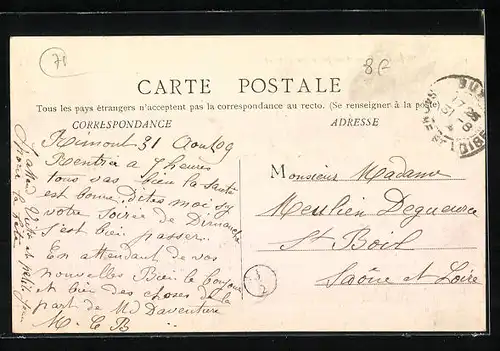 71
8F
CARTE POSTALE
Tous les pays étrangers n'acceptent pas la correspondance au recto. (Se renseigner à la poste)
CORRESPONDANCE
ADRESSE
Rimont 31 Aout 09
Rentré a 7 heures
tous vas bien la santé
est bonne dites moi sy
votre Soirée de Dimanche
s'est bien passer
En attendant de vos
nouvelles Bien le bonjour
et bien des choses de la
part de Md Daventure
M. C B
Monsieur Madame
Meulien Degueurce
St Boil
Saône et Loire